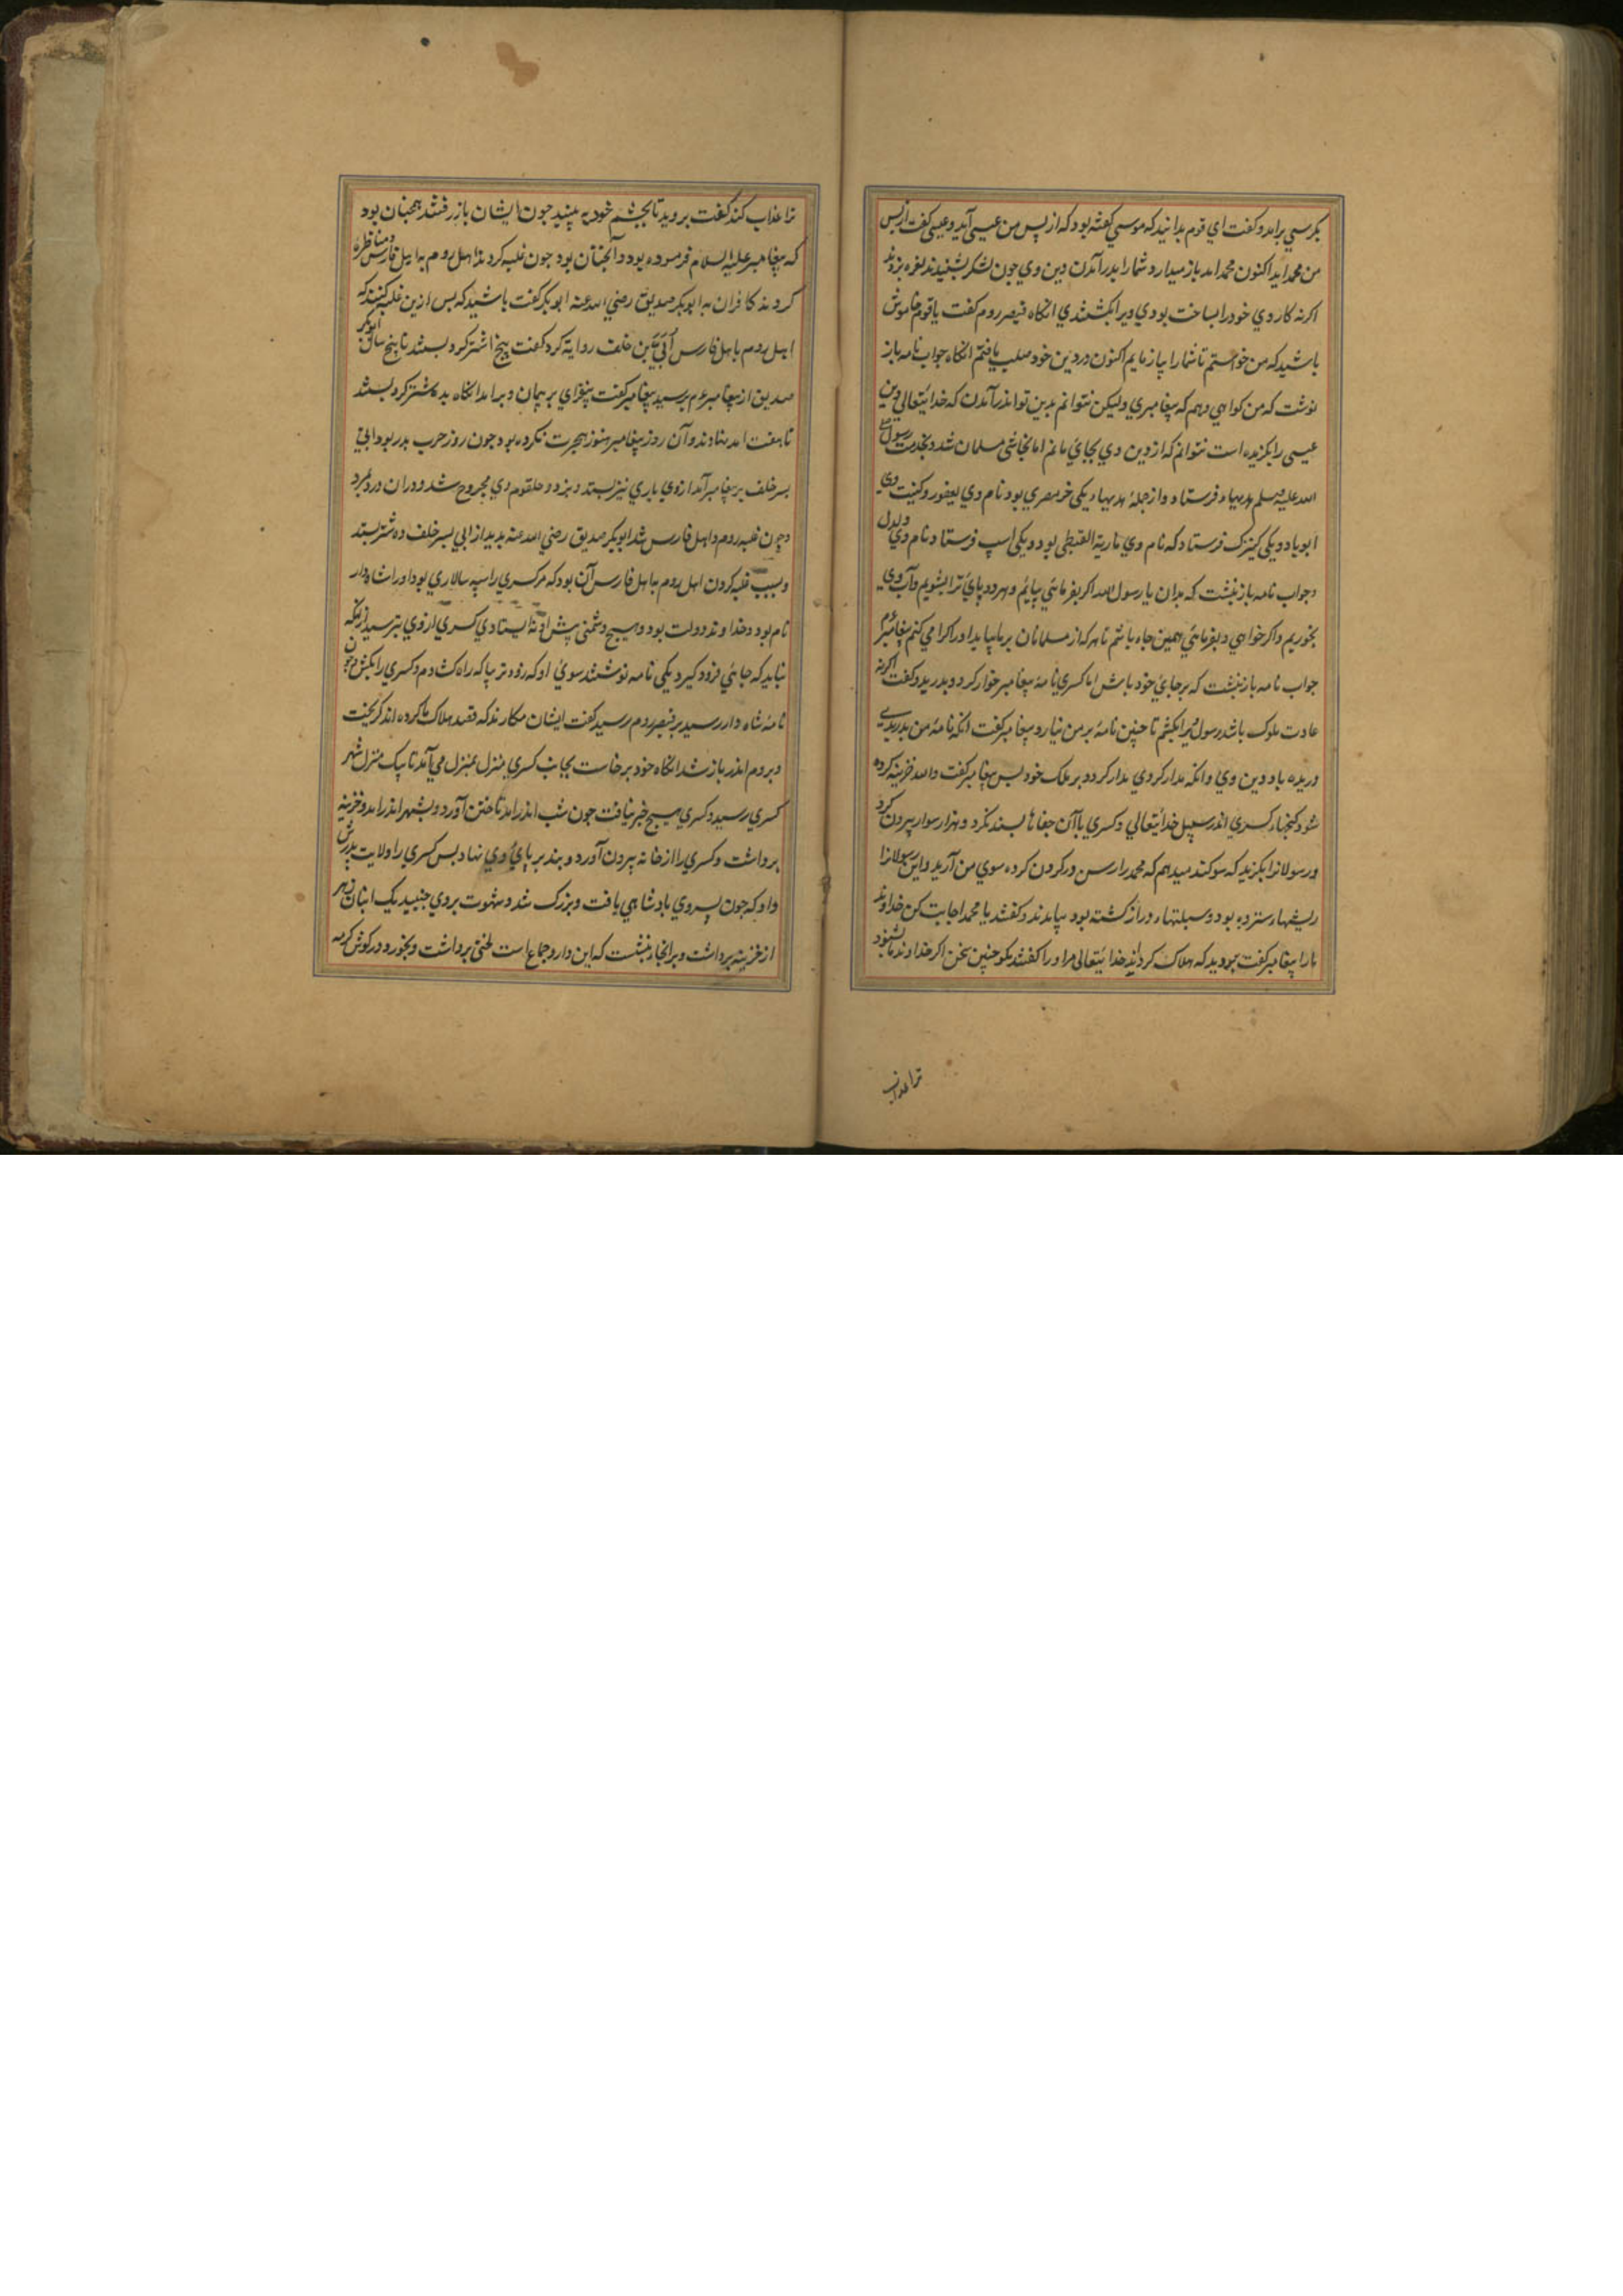 بکرسي برامد و کفت اي قوم بدانید که موسي کفته بود که از پس من عیسي آید و عیسي کفت از پس
من محمد اید اکنون محمد امد باز میدارد شما را بدرآمدن دین وي جون لشکر بشنیدند نعره بزدند
اکر نه کار وي خود را بساخت بودي ویرا بکشتندي انکاه قیصر روم کفت یا قوم خاموش
باشید که من خواستم تا شما را بیازمایم اکنون در دین خود صلب یافتم انکاه جواب نامه باز
نوشت که من کواهي دهم که پیغامبري ولیکن نتوانم بدین تو اندرآمدن که خدایتعالي دین
عیسي را بکزیده است نتوانم که از دین وي بجاي مانم اما نجاشي مسلمان شد و بخدمت رسول صلي
الله علیه وسلم هدیهاء فرستاد و از جملهٔ هدیهاء یکي خر مصري بود نام وي یعفور و کنیت وي
ابوباد و یکي کنیزک فرستاد که نام وي ماریة القبطي بود و یکي اسپ فرستاد نام وي دلدل
و جواب نامه باز نبشت که بدان یا رسول الله اکر بفرمائي بیایم و هر دو پاي ترا بشویم و آب وي
بخوریم و اکر خواهي و بفرمائي همین جاء باشم تا هر که از مسلمانان بر ما بیاید او را کرامي کنم پیغامبر
جواب نامه باز نبشت که بر جاي خود باش اما کسري نامهٔ پیغامبر خوار کرد و بدرید و کفت اکر نه
عادت ملوک باشد رسول را بکشتم تا چنین نامهٔ بر من نیارد پیغامبر کفت انکه نامهٔ من بدریدي
دریده باد دین وي و انکه مدار کردي مدار کردد بر ملک خود پس پیغامبر کفت والله خزینه کرده
شود کنجهاء کسري اندر سبیل خدایتعالي و کسري با آن جفاها بسند نکرد و هزار سوار بیرون کرد
و رسولانرا بکزید که سوکند میدهم که محمد را رسن در کردن کرده سوي من آرید و این رسولانرا
ریشهاء سترده بود و سبلتهاء دراز کشته بود بیامدند و کفتند یا محمد اجابت کن خداوند
ما را پیغامبر کفت بروید که هلاک کرداند خدایتعالي مر او را کفتند مکو چنین سخن اکر خداوند ما بشنود
ترا عذاب
ترا عذاب کند کفت بروید تا بچشم خود به بینید جون ایشان باز رفتند همچنان بود
که پیغامبر علیه السلام فرموده بود و آنچنان بود جون غلبه کردند اهل روم به اهل فارس و مناظره
کردند کافران به ابوبکر صدیق رضي الله عنه ابوبکر کفت باشید که پس ازین غلبه کنند که
اهل روم با اهل فارس اُبَيّ بن خلف روایة کرد کفت پنج اشتر کرو بستند تا پنج سال ابوبکر
صدیق از پیغامبر عم پرسید پیغامبر کفت بیفزاي بر پیمان و برامد انکاه بده شتر کرو بستند
تا هفت امد بنهادند و آن روز پیغامبر هنوز هجرت نکرده بود جون روز حرب بدر بود ابي
پسر خلف بر پیغامبر آمد از وي یاري نیز بستد و بزد و حلقوم وي مجروح شد و دران درد بمرد
و چون غلبه روم و اهل فارس شد ابوبکر صدیق رضي الله عنه بدید از ابي پسر خلف ده شتر بستد
و بسبب غلبه کردن اهل روم به اهل فارس آن بود که مر کسري را سپه سالاري بود او را شاه دار
نام بود و خداوند دولت بود و هیچ دشمني پیش او نه ایستادي کسري از وي بترسید از انکه
نباید که جائي فرود کیرد یکي نامه نوشتند سوي او که زود تر بیا که راه کشادم و کسري را بکش و چون
نامهٔ شاه دار رسید بر قیصر روم برسید کفت ایشان مکارند که قصد هلاک ما کرده اند کریخت
و بروم اندر باز شد انکاه خود برخاست بجانب کسري منزل بمنزل مي آمد تا بیک منزل شهر
کسري رسید و کسري هیچ خبر نیافت جون شب اندر امد تاختن آورد و بشهر اندر امد و خزینه
برداشت و کسري را از خانه بیرون آورد و بند بر پاي وي نهاد پس کسري را ولایت پدرش
داد که جون پسر وي پادشاهي یافت و بزرک شد و شهوت بروي جنبید یک انبان زهر
از خزینه برداشت و بر انجا نبشت که این دارو جماع است لختي برداشت و بخورد در کوش کرمه